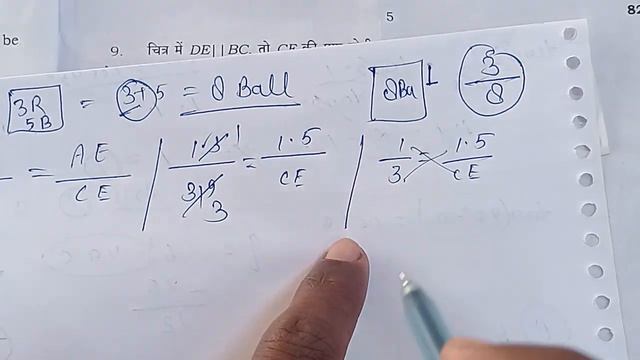 be
5
82
9. चित्र में DE||BC, तो CE की
3R 5B = 3+5 = 8 Ball 8Ba 1 3/8
= AE/CE | 1.5 1 = 1.5/CE | 1/3 = 1.5/CE
3